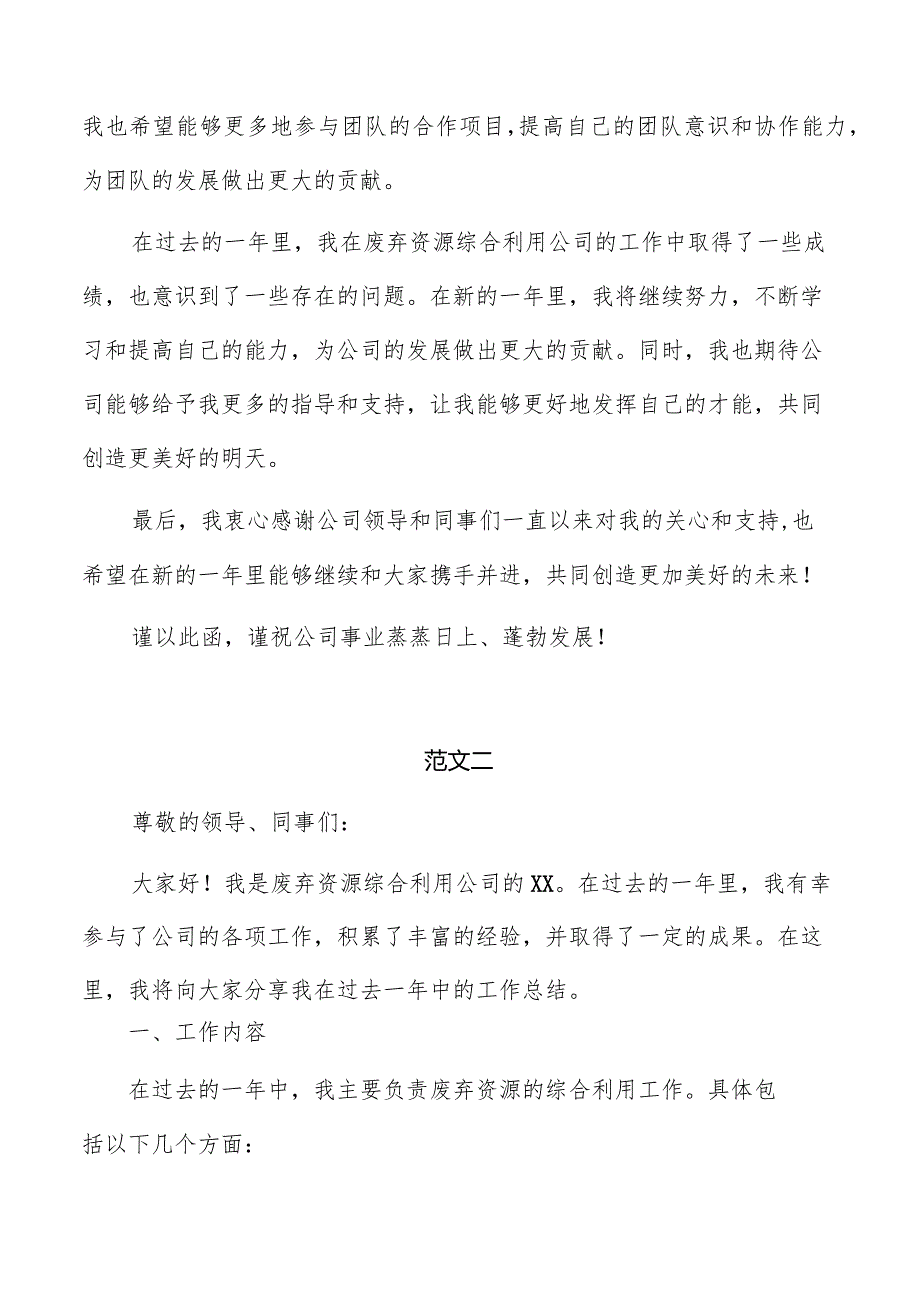 我也希望能够更多地参与团队的合作项目,提高自己的团队意识和协作能力,
为团队的发展做出更大的贡献。
在过去的一年里，我在废弃资源综合利用公司的工作中取得了一些成
绩，也意识到了一些存在的问题。在新的一年里，我将继续努力，不断学
习和提高自己的能力，为公司的发展做出更大的贡献。同时，我也期待公
司能够给予我更多的指导和支持，让我能够更好地发挥自己的才能，共同
创造更美好的明天。
最后，我衷心感谢公司领导和同事们一直以来对我的关心和支持,也
希望在新的一年里能够继续和大家携手并进，共同创造更加美好的未来！
谨以此函，谨祝公司事业蒸蒸日上、蓬勃发展！
范文二
尊敬的领导、同事们：
大家好！我是废弃资源综合利用公司的 XX。在过去的一年里，我有幸
参与了公司的各项工作，积累了丰富的经验，并取得了一定的成果。在这
里，我将向大家分享我在过去一年中的工作总结。
一、工作内容
在过去的一年中，我主要负责废弃资源的综合利用工作。具体包
括以下几个方面：